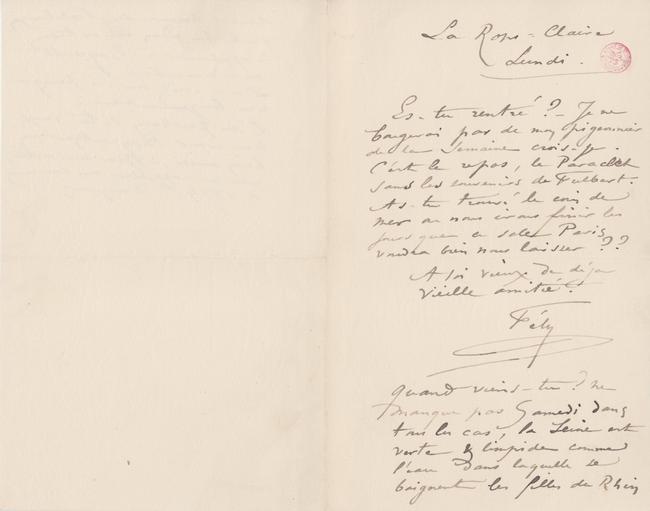 La Rops-Claire
Lundi.
Es-tu rentré ?- Je ne
bougerai pas de mon pigeonnier
de la semaine crois-je.
C'est le repos, le Paraclet
sans les souvenirs de Fulbert.
As-tu trouvé le coin de
mer ou nous irons finir les
jours que ce sale Paris
voudra bien nous laisser ??
A toi vieux de déja
vieille amitié !
Fély
Quand viens-tu ? ne
manque pas Samedi dans
tous les cas, la Seine est
verte & limpide comme
l'eau dans laquelle se
baignent les filles du Rhin